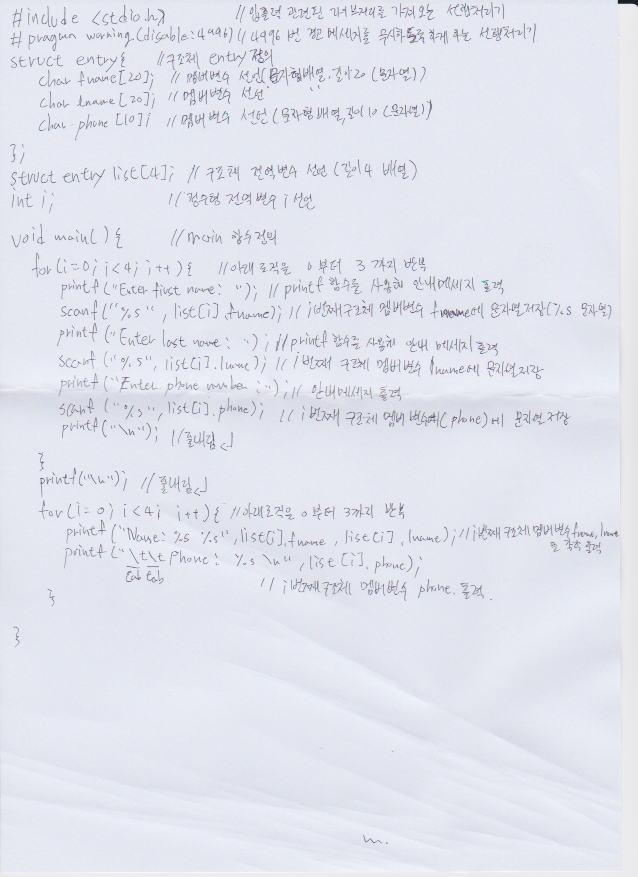 #include <stdio.h> //입출력 관련된 라이브러리를 가져오는 선행처리기
#pragma warning(disable:4996) //4996 번 경고메세지를 무시하도록 하게 하는 선행처리기
struct entry{ //구조체 entry 정의
char fname[20]; //멤버변수 선언(문자형배열, 길이20 (문자열))
char lname[20]; //멤버변수 선언 〃
char phone[10]; //멤버변수 선언(문자형배열, 길이10 (문자열))
};
struct entry list[4]; //구조체 전역변수 선언(길이4 배열)
int i; //정수형 전역변수 i 선언
void main(){ //main 함수정의
for(i=0; i<4; i++){ //아래로직은 0부터 3까지 반복
printf("Enter first name: "); //printf 함수를 사용해 안내메세지 출력
scanf("%s", list[i].fname); //i번째구조체 멤버변수 fname에 문자열저장(%s 문자열)
printf("Enter last name: "); //printf 함수를 사용해 안내 메세지 출력
scanf("%s", list[i].lname); //i번째 구조체 멤버변수 lname에 문자열저장
printf("Enter phone number :"); //안내메세지 출력
scanf("%s", list[i].phone); //i번째 구조체 멤버 변수(phone)에 문자열 저장
printf("\n"); //줄내림
}
printf("\n"); //줄내림
for(i=0; i<4; i++){ //아래로직은 0부터 3까지 반복
printf("Name: %s %s", list[i].fname, list[i].lname); //i번째구조체 멤버변수 fname, lname
를 각각 출력
printf("\t\t Phone: %s \n", list[i].phone);
tab tab //i번째구조체 멤버변수 phone. 출력.
}
}